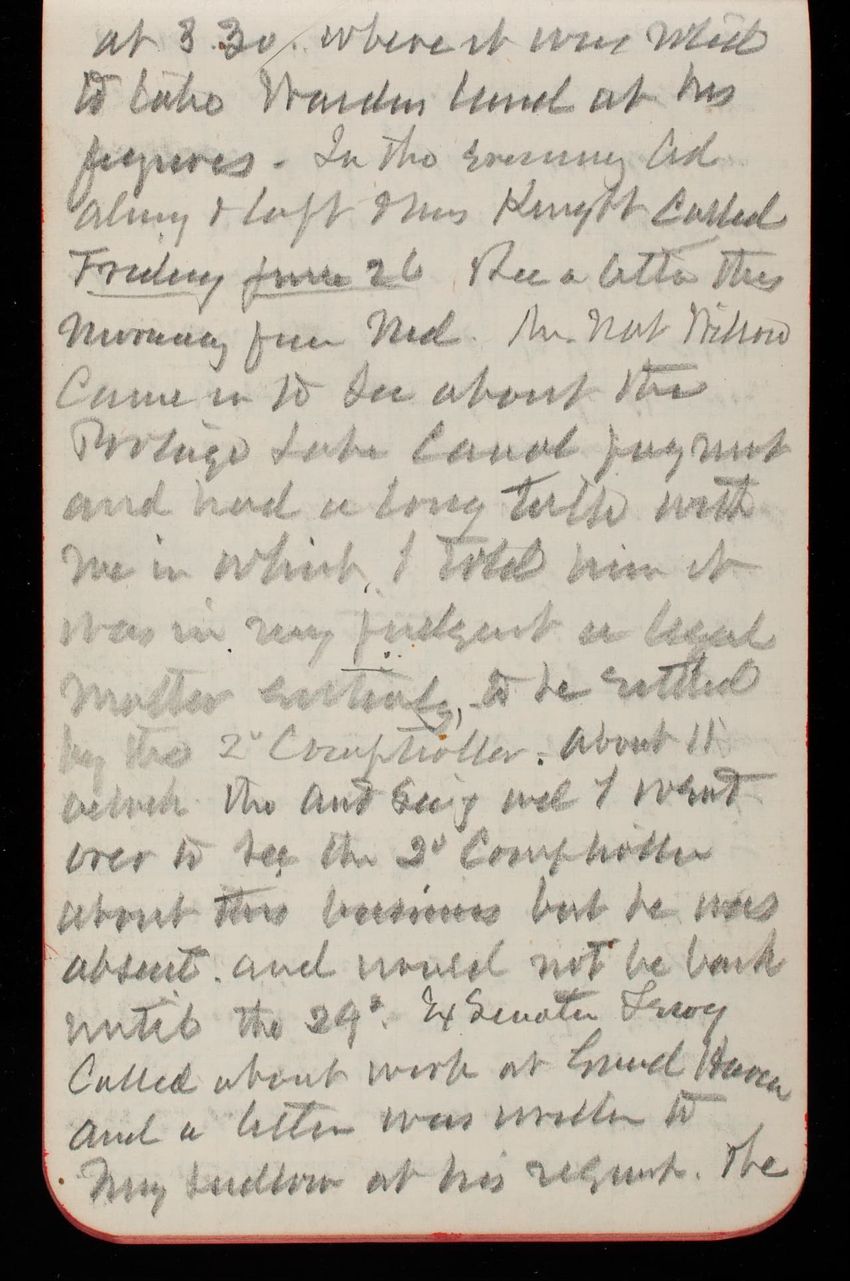 at 3.30. where it was voted
to take Warden land at his
figures - In the evening Ad
Almy & Capt & Mrs Knight Called
Friday June 26 Rec a letter this
Morning from Ned. Mr. Nat Wilson
Came in to see about the
Portage Lake Canal payment
and had a long talk with
me in which I told him it
was in my judgment a legal
matter entirely, to be settled
by the 2d Comptroller. About 11
oclock the and I went
over to see the 2d Comptroller
about this business but he was
absent. and would not be back
until the 29". Ex Senator Ferry
Called about work at Grand Haven
and a letter was written to
Maj Ludlow at his request. The